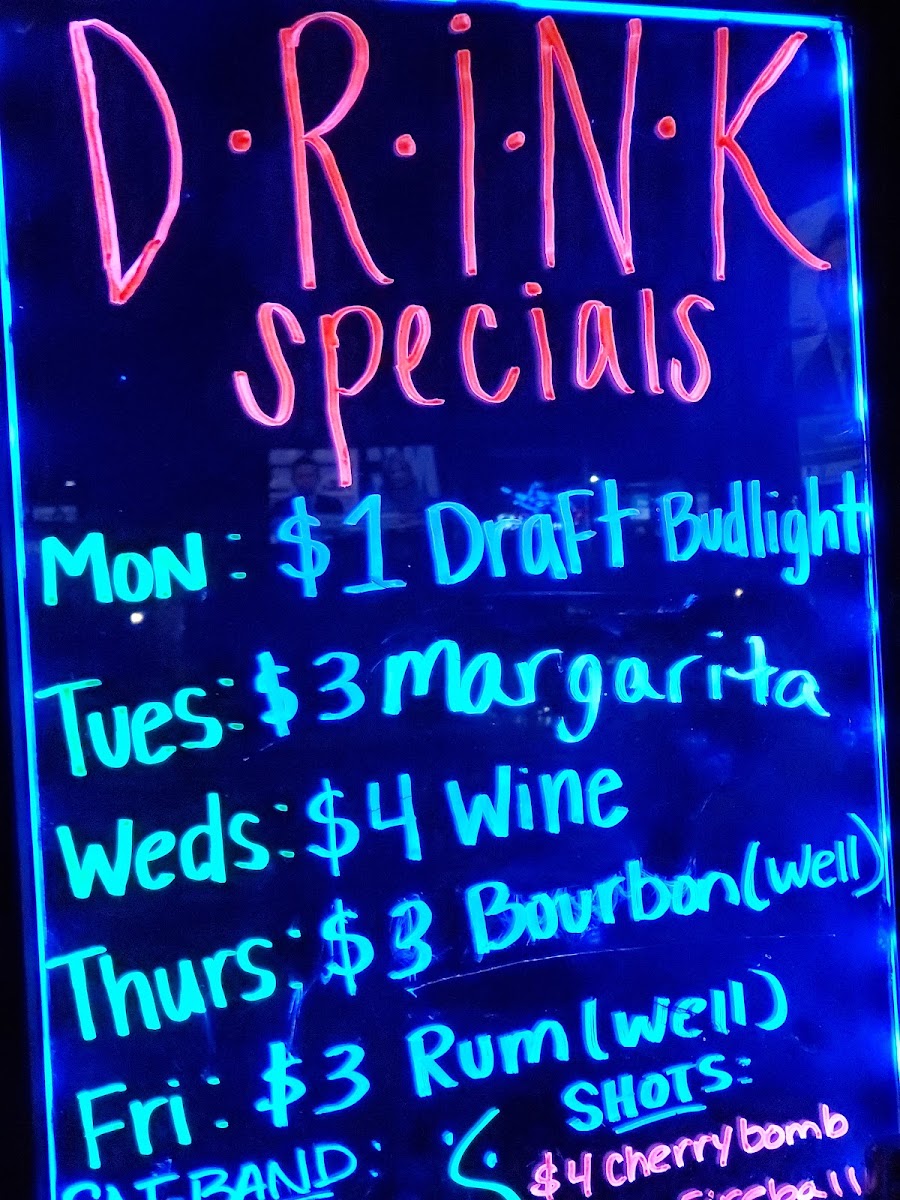 D·R·i·N·K
specials
Mon: $1 Draft Budlight
Tues: $3 Margarita
Weds: $4 Wine
Thurs: $3 Bourbon (well)
Fri: $3 Rum (well)
SHOTS:
SAT-BAND:
$4 Cherrybomb
Fireball